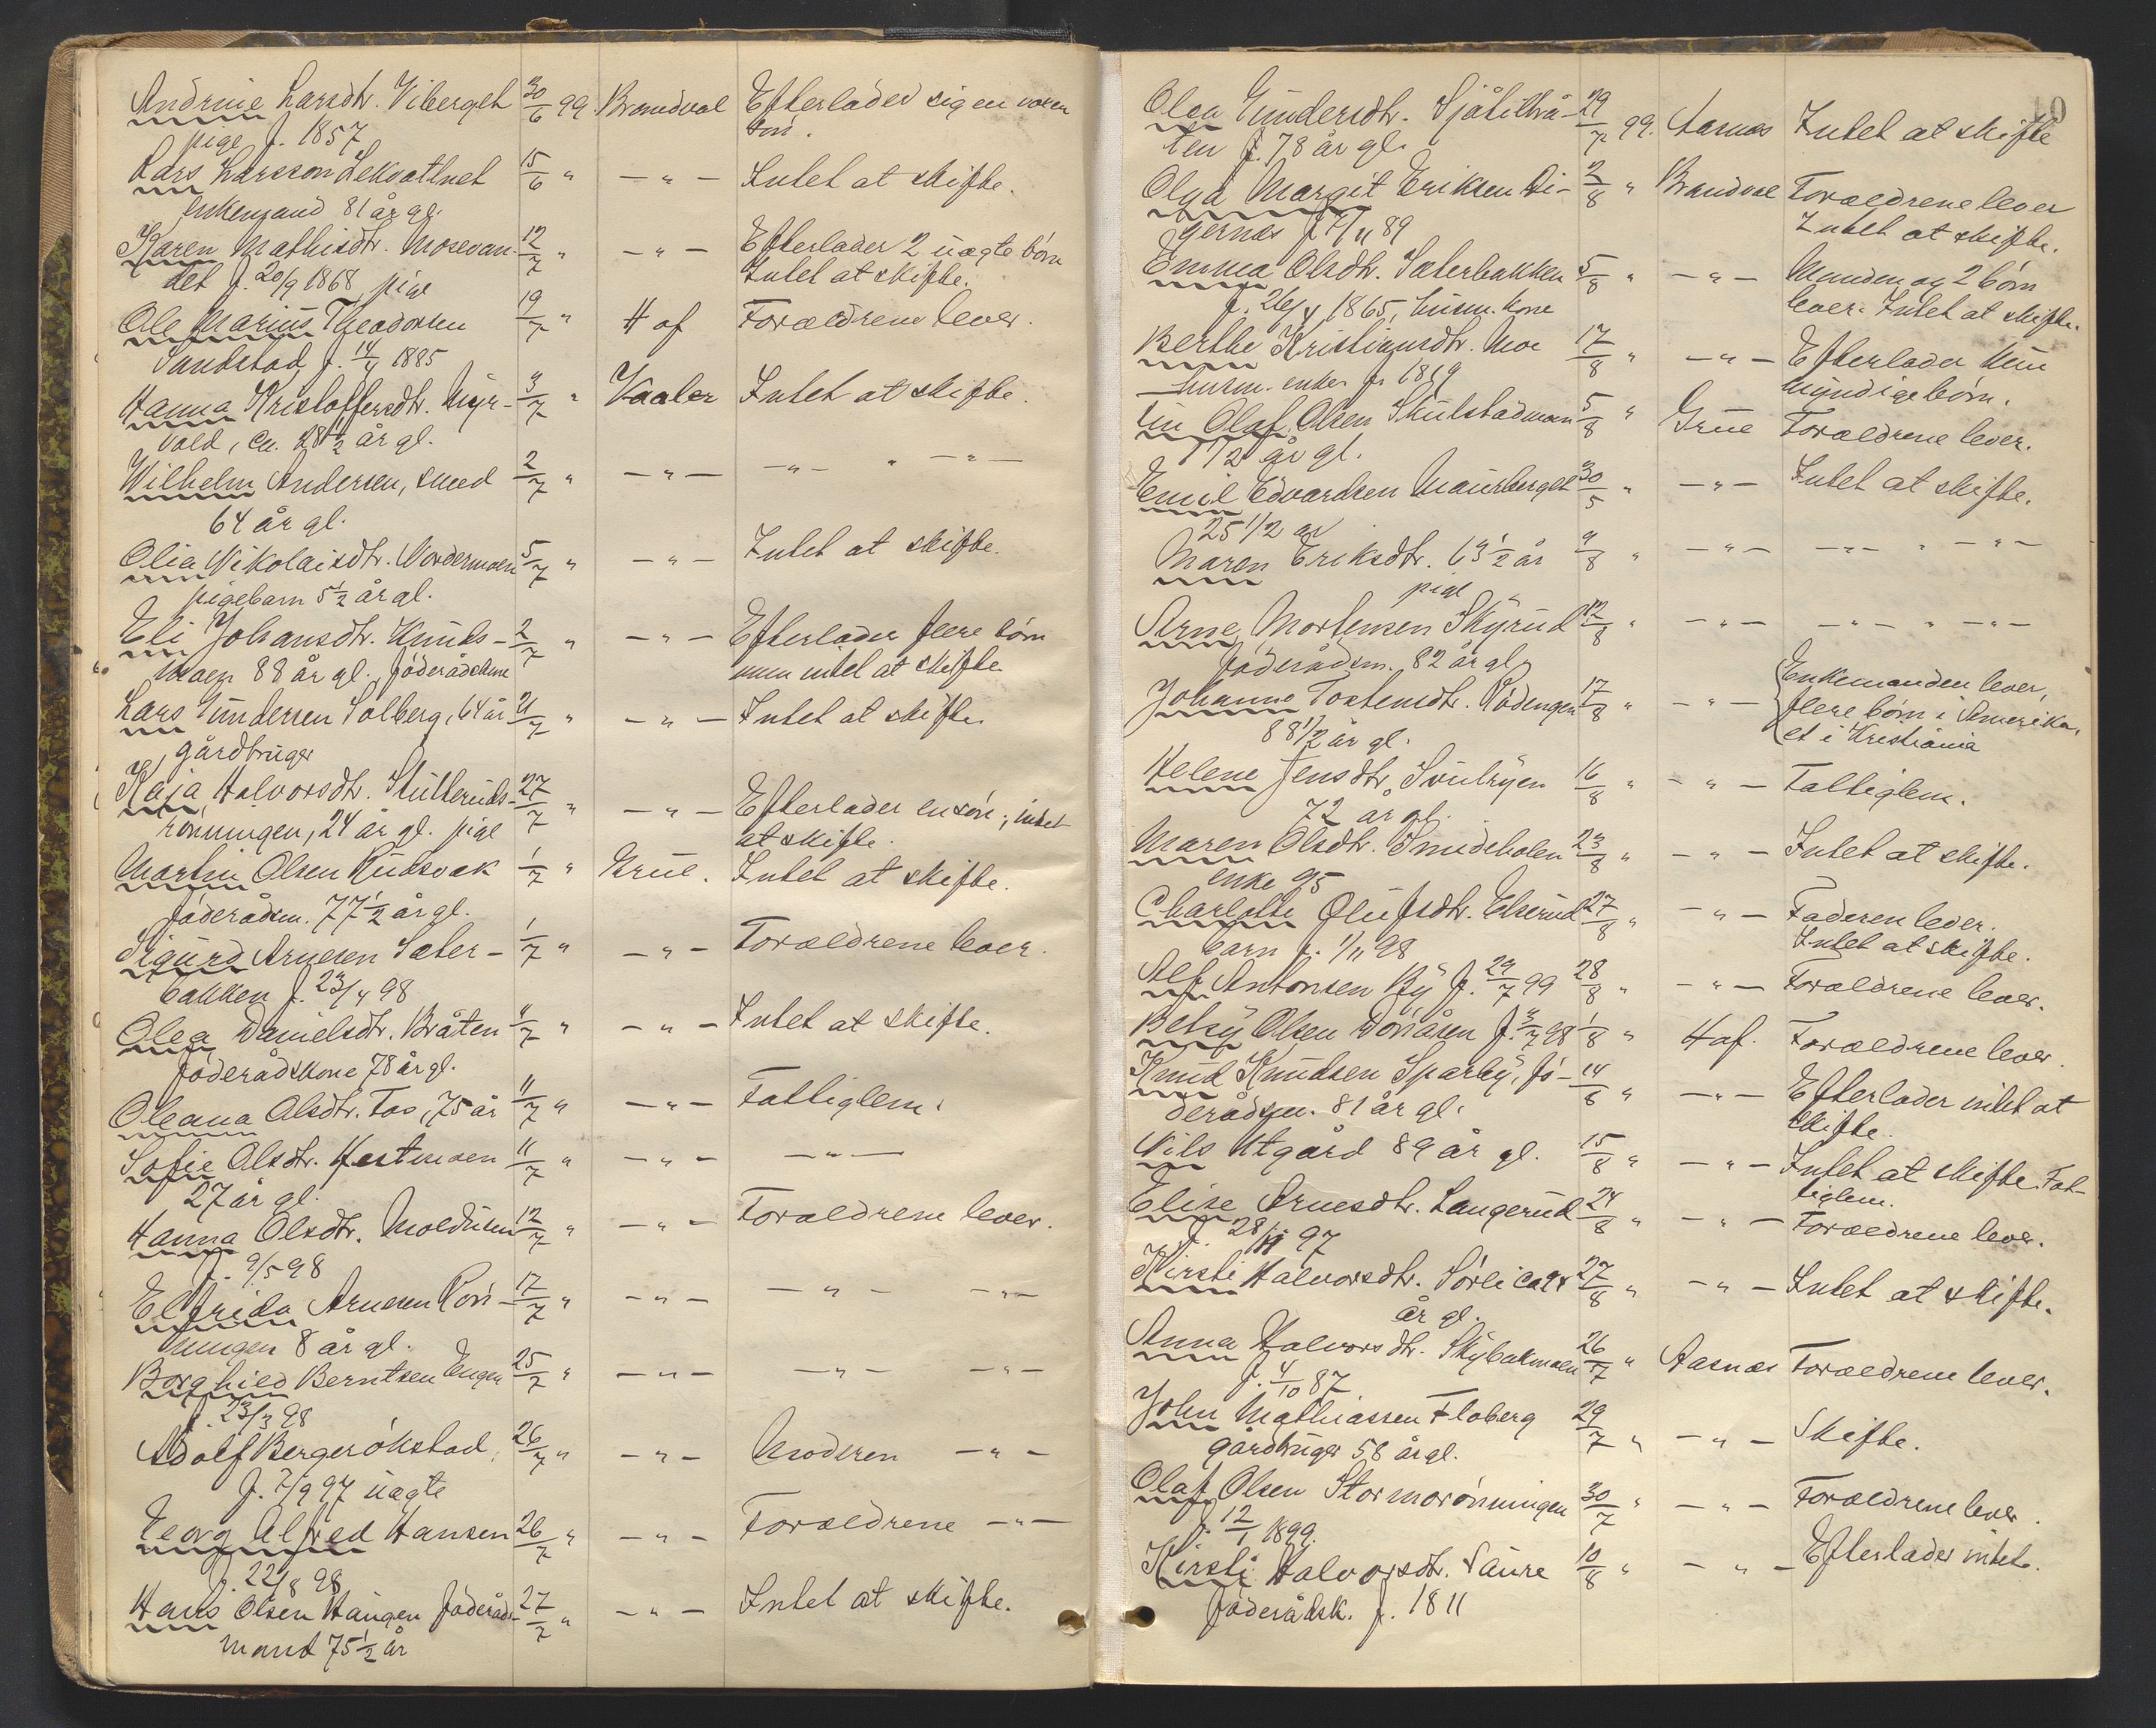 Andrine Larsdtr. Viberget 30/6 99. Brandval Efterlader sig en voxen
pige f. 1857 søn.
Lars Larsson Lekvattnet 15/6 " — " — Intet at skifte.
enkemand 81 år gl.
Karen Mathisdtr. Mosevan- 12/7 " — " — Efterlader 2 uægte børn
det f. 20/9 1868, pige Intet at skifte.
Ole Marius Theodorsen 19/7 " Hof Forældrene lever.
Sandstad f. 14/4 1885
Hanna Kristoffersdtr. Myr- 3/7 " Vaaler Intet at skifte.
vold, ca. 28 1/2 år gl.
Wilhelm Andersen, smed 2/7 " — " — — " — " — " —
64 år gl.
Olia Nikolaisdtr. Nordermoen 5/7 " — " — Intet at skifte.
pigebarn 5 1/2 år gl.
Eli Johansdtr. Knuds- 2/7 " — " — Efterlader flere børn
moen 88 år gl., føderådskone men intet at skifte
Lars Gundersen Solberg, 64 år 21/7 " — " — Intet at skifte.
gårdbruger
Kaja Halvorsdtr. Stutteruds- 27/7 " — " — Efterlader en søn; intet
rønningen, 24 år gl. pige at skifte.
Martin Olsen Rudsvak 1/7 " Grue. Intet at skifte.
føderådsm. 77 1/2 år gl.
Sigurd Arnesen Sæter- 1/7 " — " — Forældrene lever.
bakken f. 23/4 98
Olea Danielsdtr. Bråten 4/7 " — " — Intet at skifte.
føderådskone 78 år gl.
Oleana Olsdtr. Tas, 75 år 11/7 " — " — Fattiglem.
Sofie Olsdtr. Hestmoen 11/7 " — " — — " —
27 år gl.
Hanna Olsdtr. Moldusen 12/7 " — " — Forældrene lever.
f. 9/5 98
Elfrida Arnesen Røn- 17/7 " — " — — " — — " —
ningen 8 år gl.
Borghild Berntsen Engen 25/7 " — " — — " — — " —
f. 23/3 98
Adolf Bergerøkstad, 26/7 " — " — Moderen — " —
f. 7/9 97 uægte
Georg Alfred Hansen 26/7 " — " — Forældrene — " —
f. 22/8 98
Hans Olsen Haugen føderåds- 27/7 " — " — Intet at skifte.
mand 75 1/2 år
10
Olea Gundersdtr. Sjåtilbrå- 29/7 99. Aasnes Intet at skifte
ten f. 78 år gl.
Olga Margit Eriksen Di- 2/8 " Brandval Forældrene lever
gernes f. 7/11 89 Intet at skifte.
Emma Olsdtr. Sæterbakken 5/8 " — " — Manden og 2 børn
f. 26/4 1865, husm. kone lever. Intet at skifte.
Berthe Kristiansdtr. Moe 17/8 " — " — Efterlader kun
husm. enke f. 1819 myndige børn.
Olaf Olsen Skulstadmoen 5/8 " Grue Forældrene lever.
1/2 år gl.
Emil Edvardsen Mausberget 30/5 " — " — Intet at skifte.
25 1/2 år
Maren Eriksdtr. 69 1/2 år 9/8 " — " — — " — " — " —
pige
Arne Mortensen Skyrud 12/8 " — " — — " — " — " —
føderådsm. 82 år gl.
Johanne Tostensdtr. Rødengen 17/8 " — " — Enkemanden lever,
88 1/2 år gl. flere børn i Amerika,
et i Kristiania
Helene Jensdtr. Svulryen 16/8 " — " — Fattiglem.
72 år gl.
Maren Olsdtr. Smedsholen 23/8 " — " — Intet at skifte.
enke 95
Charlotte Olufsdtr. Elserud 27/8 " — " — Faderen lever.
barn f. 1/11 98 Intet at skifte.
Alf Antonsen By f. 29/7 99 28/8 " — " — Forældrene lever.
Betsy Olsen Dønåsen f. 3/7 98 1/8 " Hof. Forældrene lever.
Knud Knudsen Sparby, fø- 14/8 " — " — Efterlader intet at
derådsm. 81 år gl. skifte.
Nils Utgård 89 år gl. 15/8 " — " — Intet at skifte. Fat-
tiglem.
Elise Arnesdtr. Langerud 24/8 " — " — Forældrene lever.
f. 28/11 97
Kirsti Halvorsdtr. Sørli ca 94 27/8 " — " — Intet at skifte.
år gl.
Anna Halvorsdtr. Skybakmoen 26/7 " Aasnes Forældrene lever.
f. 4/10 87
John Mathiassen Floberg 29/7 " — " — Skifte.
gårdbruger 58 år gl.
Olaf Olsen Stormorønningen 30/7 " — " — Forældrene lever.
f. 12/1 1899.
Kirsti Halvorsdtr. Saure 10/8 " — " — Efterlader intet.
føderådsk. f. 1811